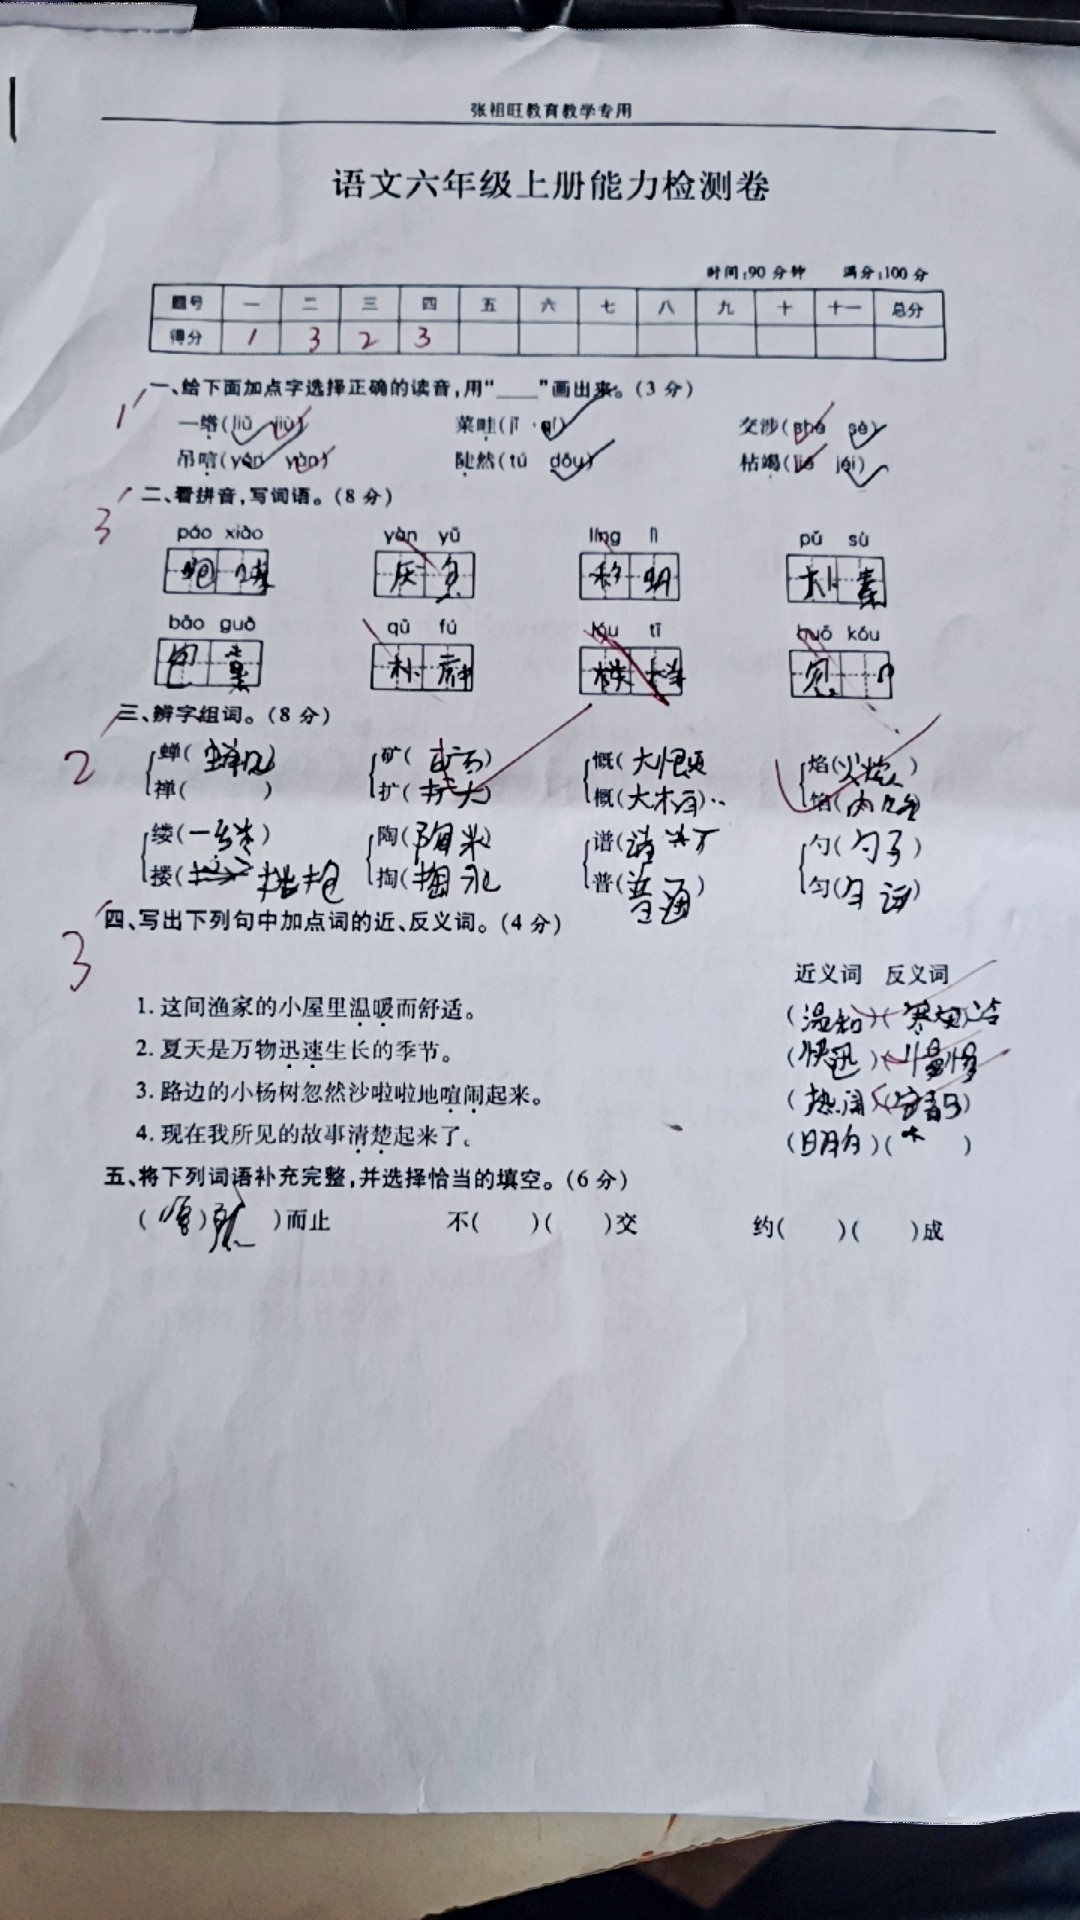 张祖旺教育教学专用
语文六年级上册能力检测卷
时间:90分钟 满分:100分
题号 一 二 三 四 五 六 七 八 九 十 十一 总分
得分 1 3 2 3
一、给下面加点字选择正确的读音,用“____”画出来。(3分)
1
一绺(liǔ jiù) 菜畦(jī qí) 交涉(shè sè)
吊唁(yán yàn) 陡然(tú dǒu) 枯竭(jié jéi)
二、看拼音,写词语。(8分)
3
páo xiào yàn yǔ líng lì pǔ sù
咆哮 朴素
bāo guǒ qū fú lóu tī huō kóu
包裹 口
三、辨字组词。(8分)
2
蝉( ) 矿(矿石) 慨( ) 焰(火焰)
禅( ) 扩(扩大) 概(大概) 馅(肉馅)
缕(一缕) 陶( ) 谱( ) 勺(勺子)
搂( ) 掏( ) 普(普通) 匀( )
四、写出下列句中加点词的近、反义词。(4分)
3
近义词 反义词
1.这间渔家的小屋里温暖而舒适。 (温和)(寒冷)
2.夏天是万物迅速生长的季节。 (快迅)(慢慢)
3.路边的小杨树忽然沙啦啦地喧闹起来。 (热闹)(安静)
4.现在我所见的故事清楚起来了。 (明白)( )
五、将下列词语补充完整,并选择恰当的填空。(6分)
( )( )而止 不( )( )交 约( )( )成